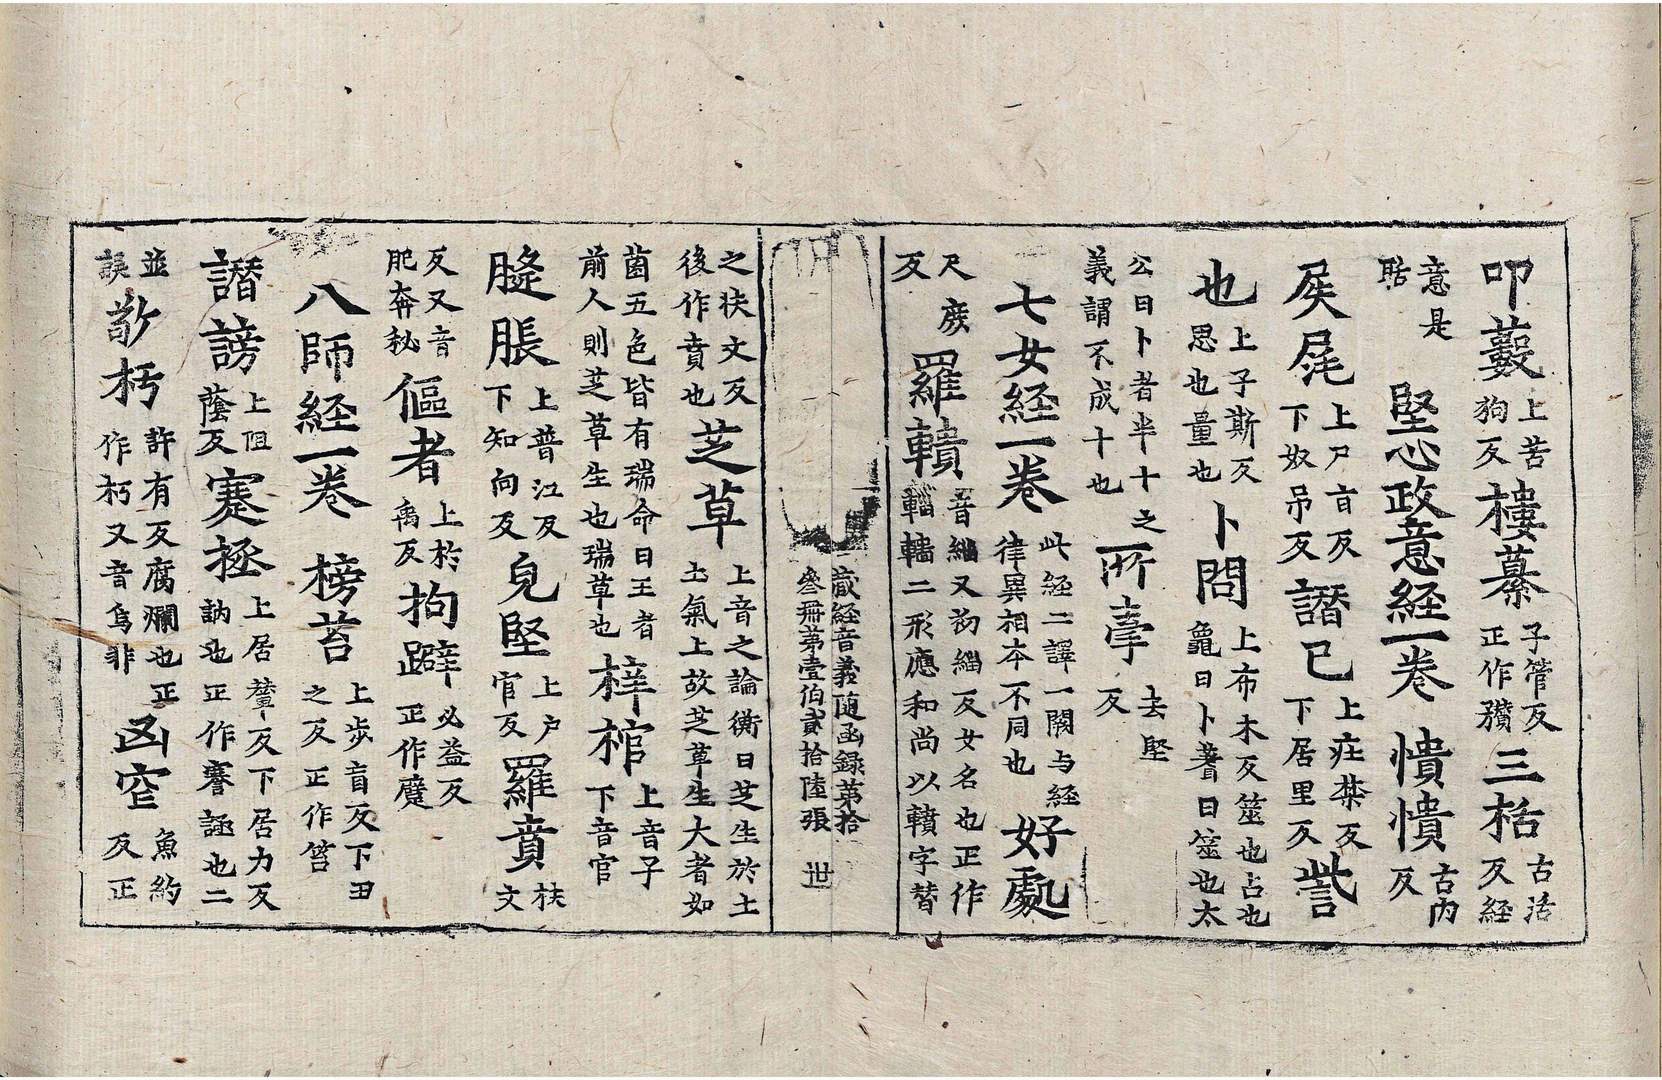 叩藪上苦狗反樓蔂子管反正作穳三栝古活反経
意是聒堅心政意経一卷憒憒古内反
㞋㞘上尸盲反下奴吊反譖已上疰禁反下居里反訾
也上子斯反思也量也卜問上布木反筮也占也龜曰卜蓍曰筮也太
公曰卜者半十之義謂不成十也所牽去堅反
七女経一卷此経二譯一闕与経律異相本不同也好處
尺庻反羅䡽音緇又初緇反女名也正作輜轖二形應和尚以䡽字替
藏経音義隨函録第拾叄冊第壹伯貳拾陸張 世
之扶文反後作賁也芝草上音之論衡曰芝生於土土氣上故芝草生大者如
菌五色皆有瑞命曰王者前人則芝草生也瑞草也梓棺上音子下音官
膖脹上普江反下知向反皃堅上户官反羅賁扶文
反又音肥奔秘傴者上於禹反拘躃必益反正作躄
八師経一卷 榜苔上步盲反下丑之反正作笞
譖謗上伹蔭反蹇拯上居輦反下居力反訥也正作謇誣也二
並誤敨朽許有反腐爛也正作朽又音烏非凶窄魚約反正